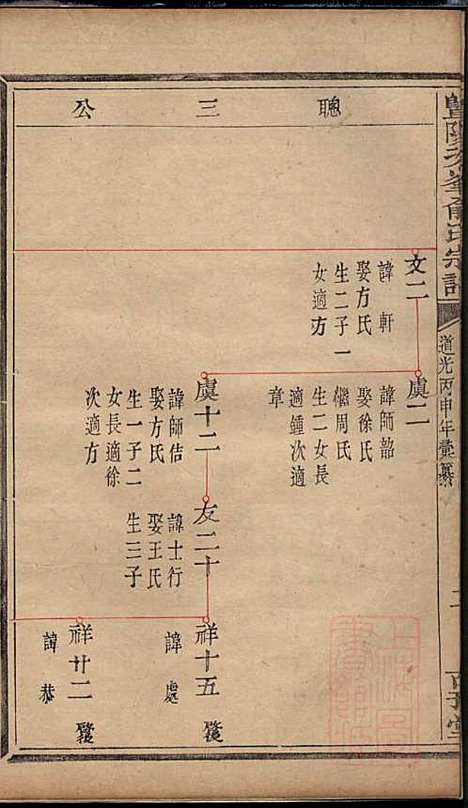 聰三公
文二
諱軒
娶方氏
生二子一
女適方
虞二
諱師韶
娶徐氏
繼周氏
生二女長
適鍾次適
章
虞十二
諱師佶
娶方氏
生一子二
女長適徐
次適方
友二十
諱士行
娶王氏
生三子
祥十五
諱處
祥廿二
諱恭
暨陽 峯俞氏宗譜
道光丙申年彙纂
二